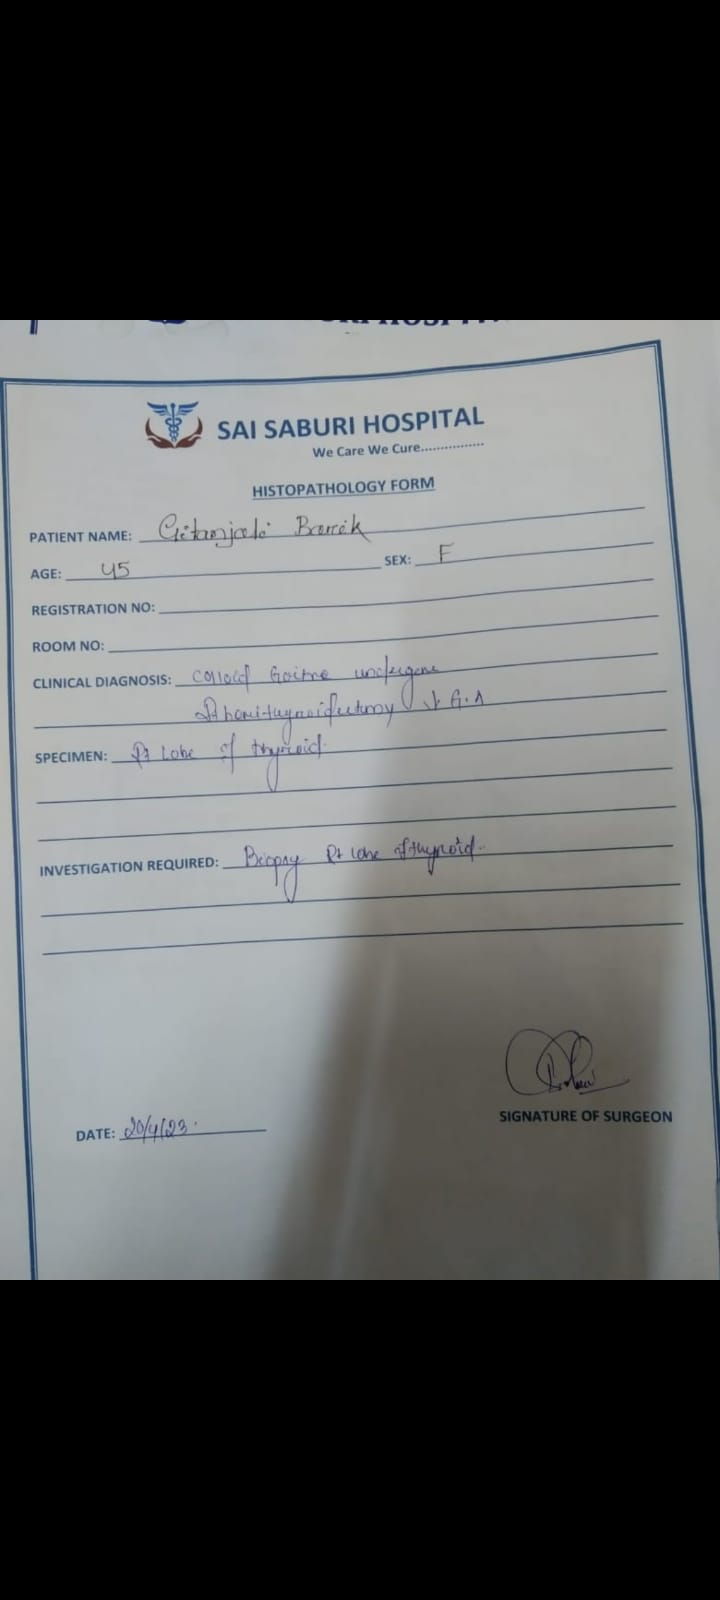 SAI SABURI HOSPITAL
We Care We Cure...............
HISTOPATHOLOGY FORM
PATIENT NAME: Gitanjali Barik
AGE: 45 SEX: F
REGISTRATION NO:
ROOM NO:
CLINICAL DIAGNOSIS: Colloid Goitre undergone
Rt hemithyroidectomy G.A
SPECIMEN: Rt Lobe of thyroid.
INVESTIGATION REQUIRED: Biopsy Rt lobe of thyroid.
SIGNATURE OF SURGEON
DATE: 20/4/23.